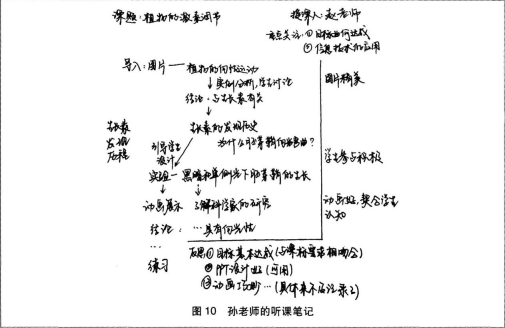 课题：植物的激素调节
授课人：赵老师
重点关注：①目标如何达成
②信息技术的应用
导入：图片——植物的向性运动
图片精美
↓实例分析，学生讨论
结论：与生长素有关
↓
生长素的发现历史
生长素
发现
历程
为什么
引导学生
设计
学生参与积极
实验一 黑暗和单侧光下胚芽鞘的生长
动画展示 了解科学家的研究
动画好，契合学生
认知
结论：…具有向光性
…
练习
反思①目标基本达成（与课标要求相吻合）
②PPT设计好（应用）
③动画巧妙…（具体来不及记录了）
图10 孙老师的听课笔记